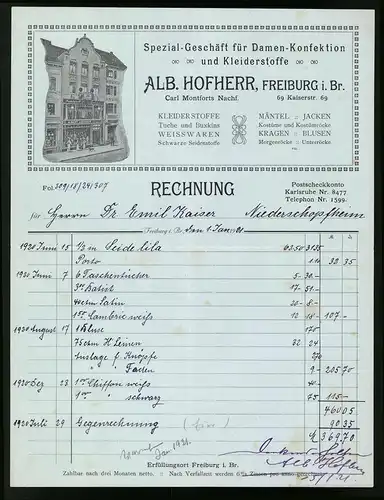 Spezial-Geschäft für Damen-Konfektion
und Kleiderstoffe
ALB. HOFHERR, FREIBURG i. Br.
Carl Montforts Nachf. 69 Kaiserstr. 69
KLEIDERSTOFFE
Tuche und Buxkins
WEISSWAREN
Schwarze Seidenstoffe
MÄNTEL :: JACKEN
Kostüme und Kostümröcke
KRAGEN :: BLUSEN
Morgenröcke :: Unterröcke
Fol. 209/18/24/307
RECHNUNG
Postscheckkonto
Karlsruhe Nr. 8477
Telephon Nr. 1599.
für Herrn Dr Emil Kaiser Niederschopfheim
Freiburg i. Br., den 1 Jan 1921
1920 Juni 15 1/2 m Seide lila 62.50 31.25
Porto 1.10 32 35
1920 Juni 7 6 Taschentücher 5 30.-
Batist 17 51.-
Satin 20 8.-
Cambric weiss 12 18.- 107.-
1920 August 17 1 Bluse 170
Leinen 32 24
Auslage f. Knöpfe
" " Faden 205 70
1920 Dez 23 Chiffon weiss 40
" schwarz 75 115.-
460 05
1920 Juli 29 Gegenrechnung 90 35
369.70
Jan 1921.
Alb Hofherr
Erfüllungsort Freiburg i. Br.
Zahlbar nach drei Monaten netto. Nach Verfallzeit werden 6% Zinsen pro anno